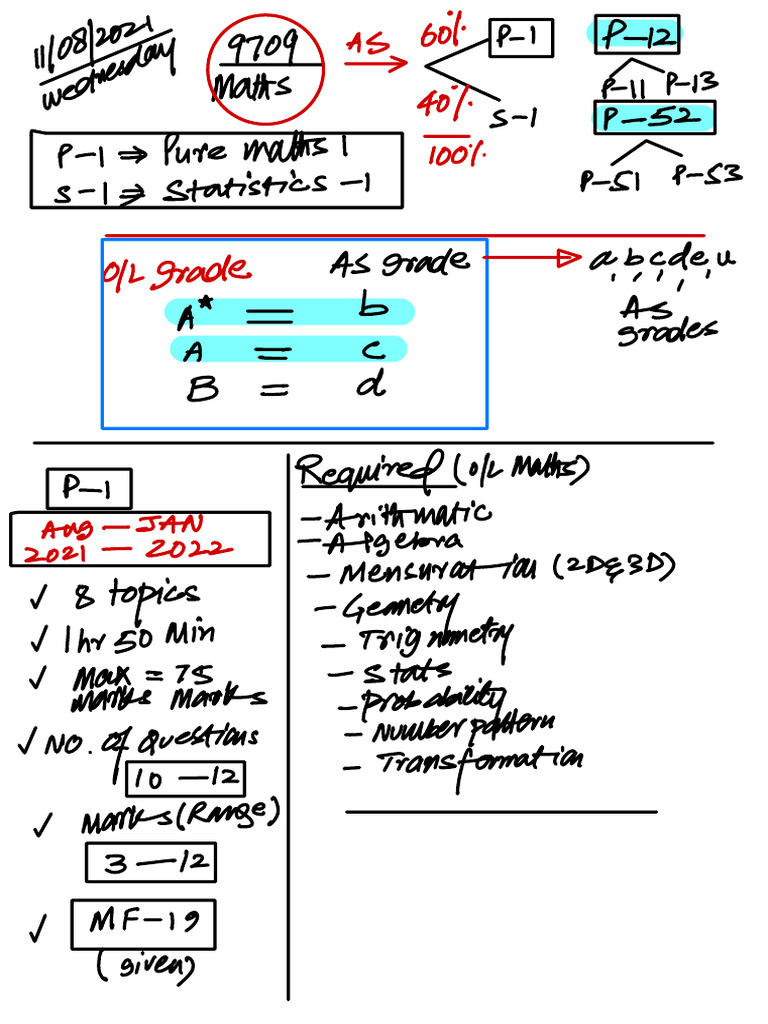 11/08/2021
Wednesday
9709
Maths
AS
60% P-1
40% S-1
100%
P-12
P-11 P-13
P-52
P-51 P-53
P-1 ⇒ Pure maths 1
S-1 ⇒ Statistics -1
O/L grade AS grade
A* = b
A = c
B = d
a, b, c, d, e, u
AS
grades
P-1
Aug — JAN
2021 — 2022
✓ 8 topics
✓ 1hr 50 Min
✓ Max = 75
marks Marks
✓ NO. of Questions
10 — 12
✓ Marks (Range)
3 — 12
✓ MF-19
(given)
Required (O/L Maths)
- Arithmatic
- Algebra
- Mensuration (2D & 3D)
- Geometry
- Trignometry
- Stats
- Probability
- Number pattern
- Transformation